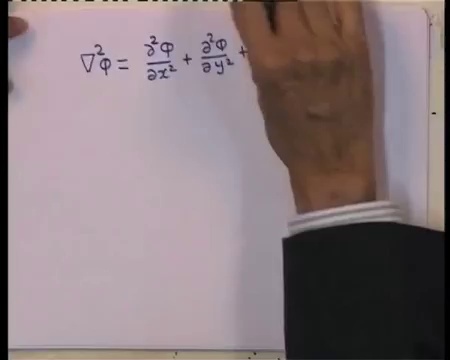 ∇²φ = ∂²φ/∂x² + ∂²φ/∂y² +